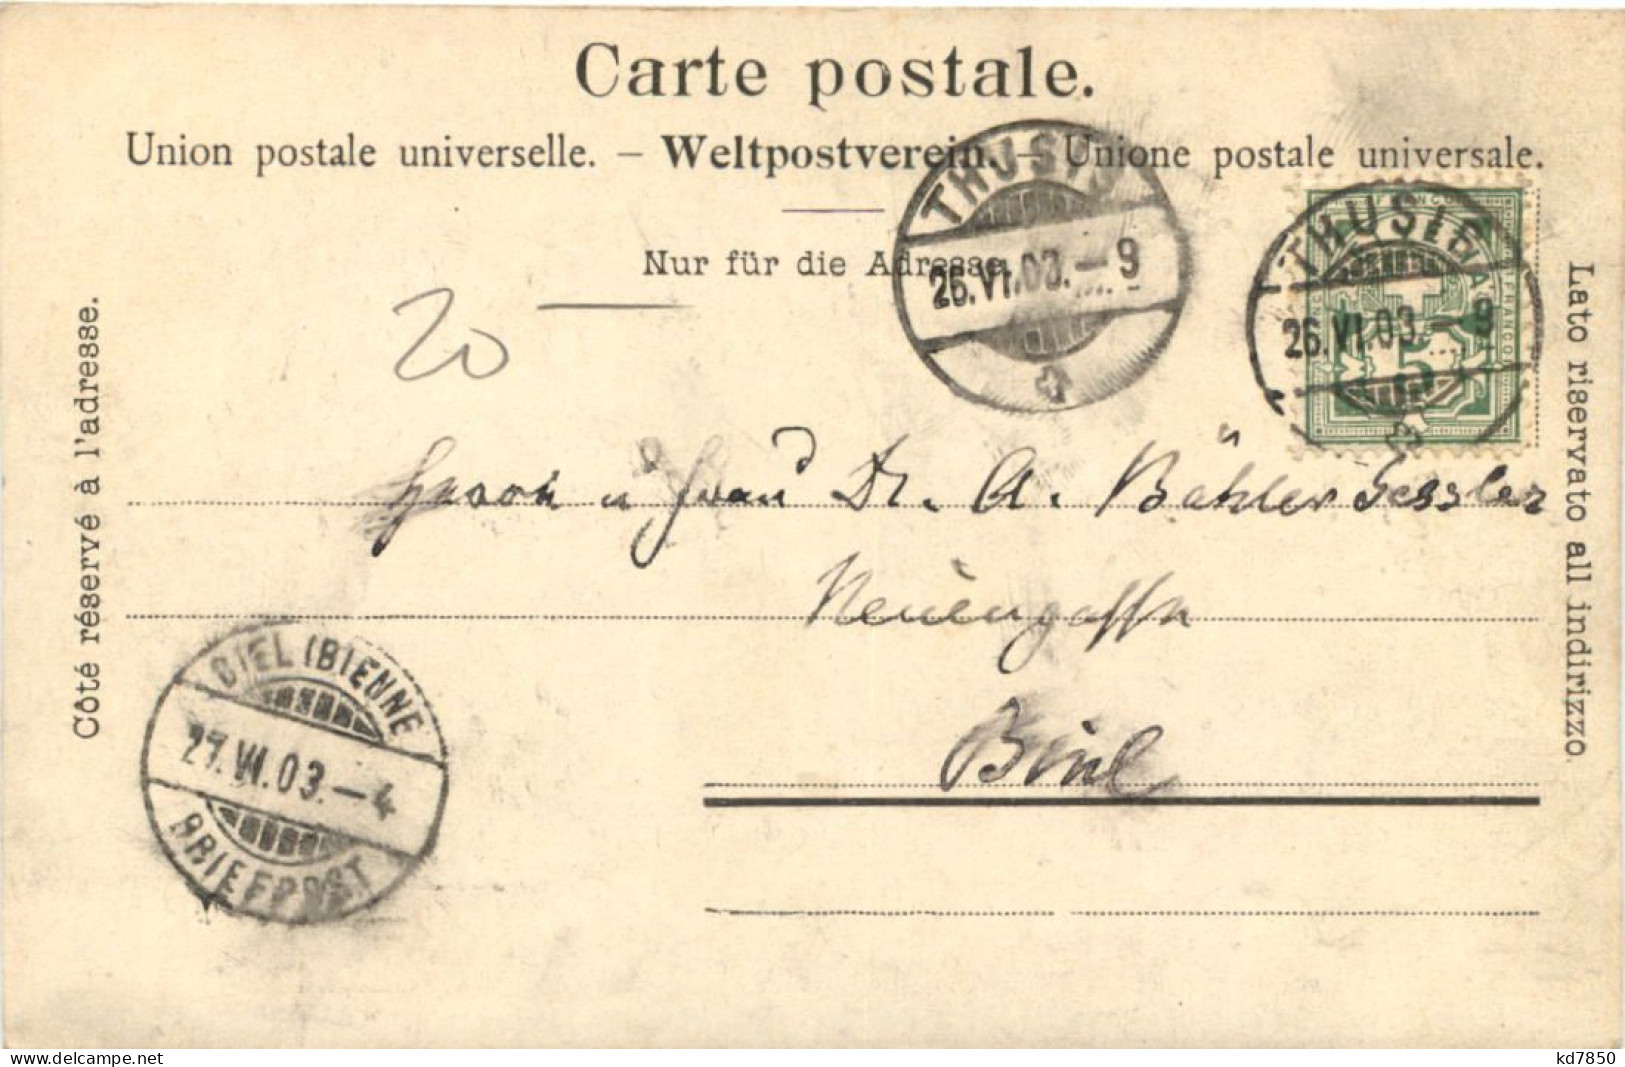 Carte postale.
Union postale universelle. – Weltpostverein. – Unione postale universale.
Nur für die Adresse.
THUSIS
26.VI.03.–9
THUSIS
26.VI.03.–9
FRANCO
5
20
Côté réservé à l'adresse.
Lato riservato all indirizzo.
Herrn u Frau Dr. A. Bähler Gessler
Neuengasse
Biel
BIEL (BIENNE)
27.VI.03.–4
BRIEFPOST
www.delcampe.net
kd7850